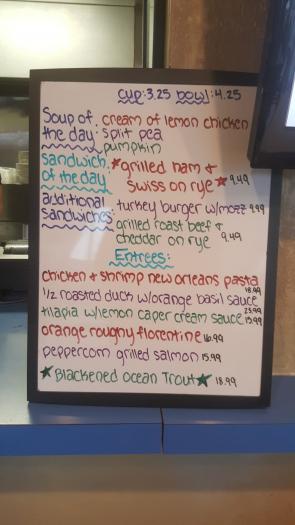 cup: 3.25 bowl: 4.25
Soup of the day: cream of lemon chicken
split pea
pumpkin
sandwich of the day: grilled ham & swiss on rye 9.49
additional sandwiches: turkey burger w/mozz 9.99
grilled roast beef & cheddar on rye 9.49
Entrees:
chicken & shrimp new orleans pasta 18.99
1/2 roasted duck w/orange basil sauce 23.99
tilapia w/lemon caper cream sauce 15.99
orange roughy florentine 16.99
peppercorn grilled salmon 15.99
Blackened Ocean Trout 18.99